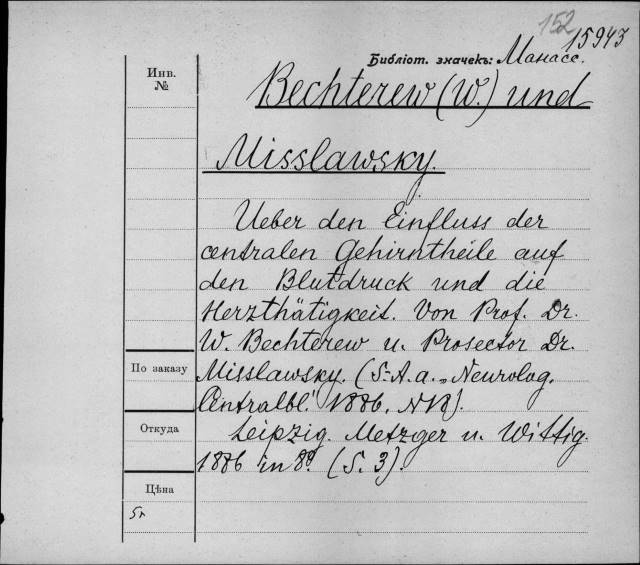 152
15943
Библіот. значекъ: Манасс.
Инв.
№
Bechterew (W.) und
Misslawsky.
Ueber den Einfluss der
centralen Gehirntheile auf
den Blutdruck und die
Herzthätigkeit. Von Prof. Dr.
W. Bechterew u. Prosector Dr.
По заказу
Misslawsky. (S.-A. a. „Neurolog.
Centralbl." 1886. N18).
Откуда
Leipzig. Metzger u. Wittig.
1886 in 8º (S. 3).
Цѣна